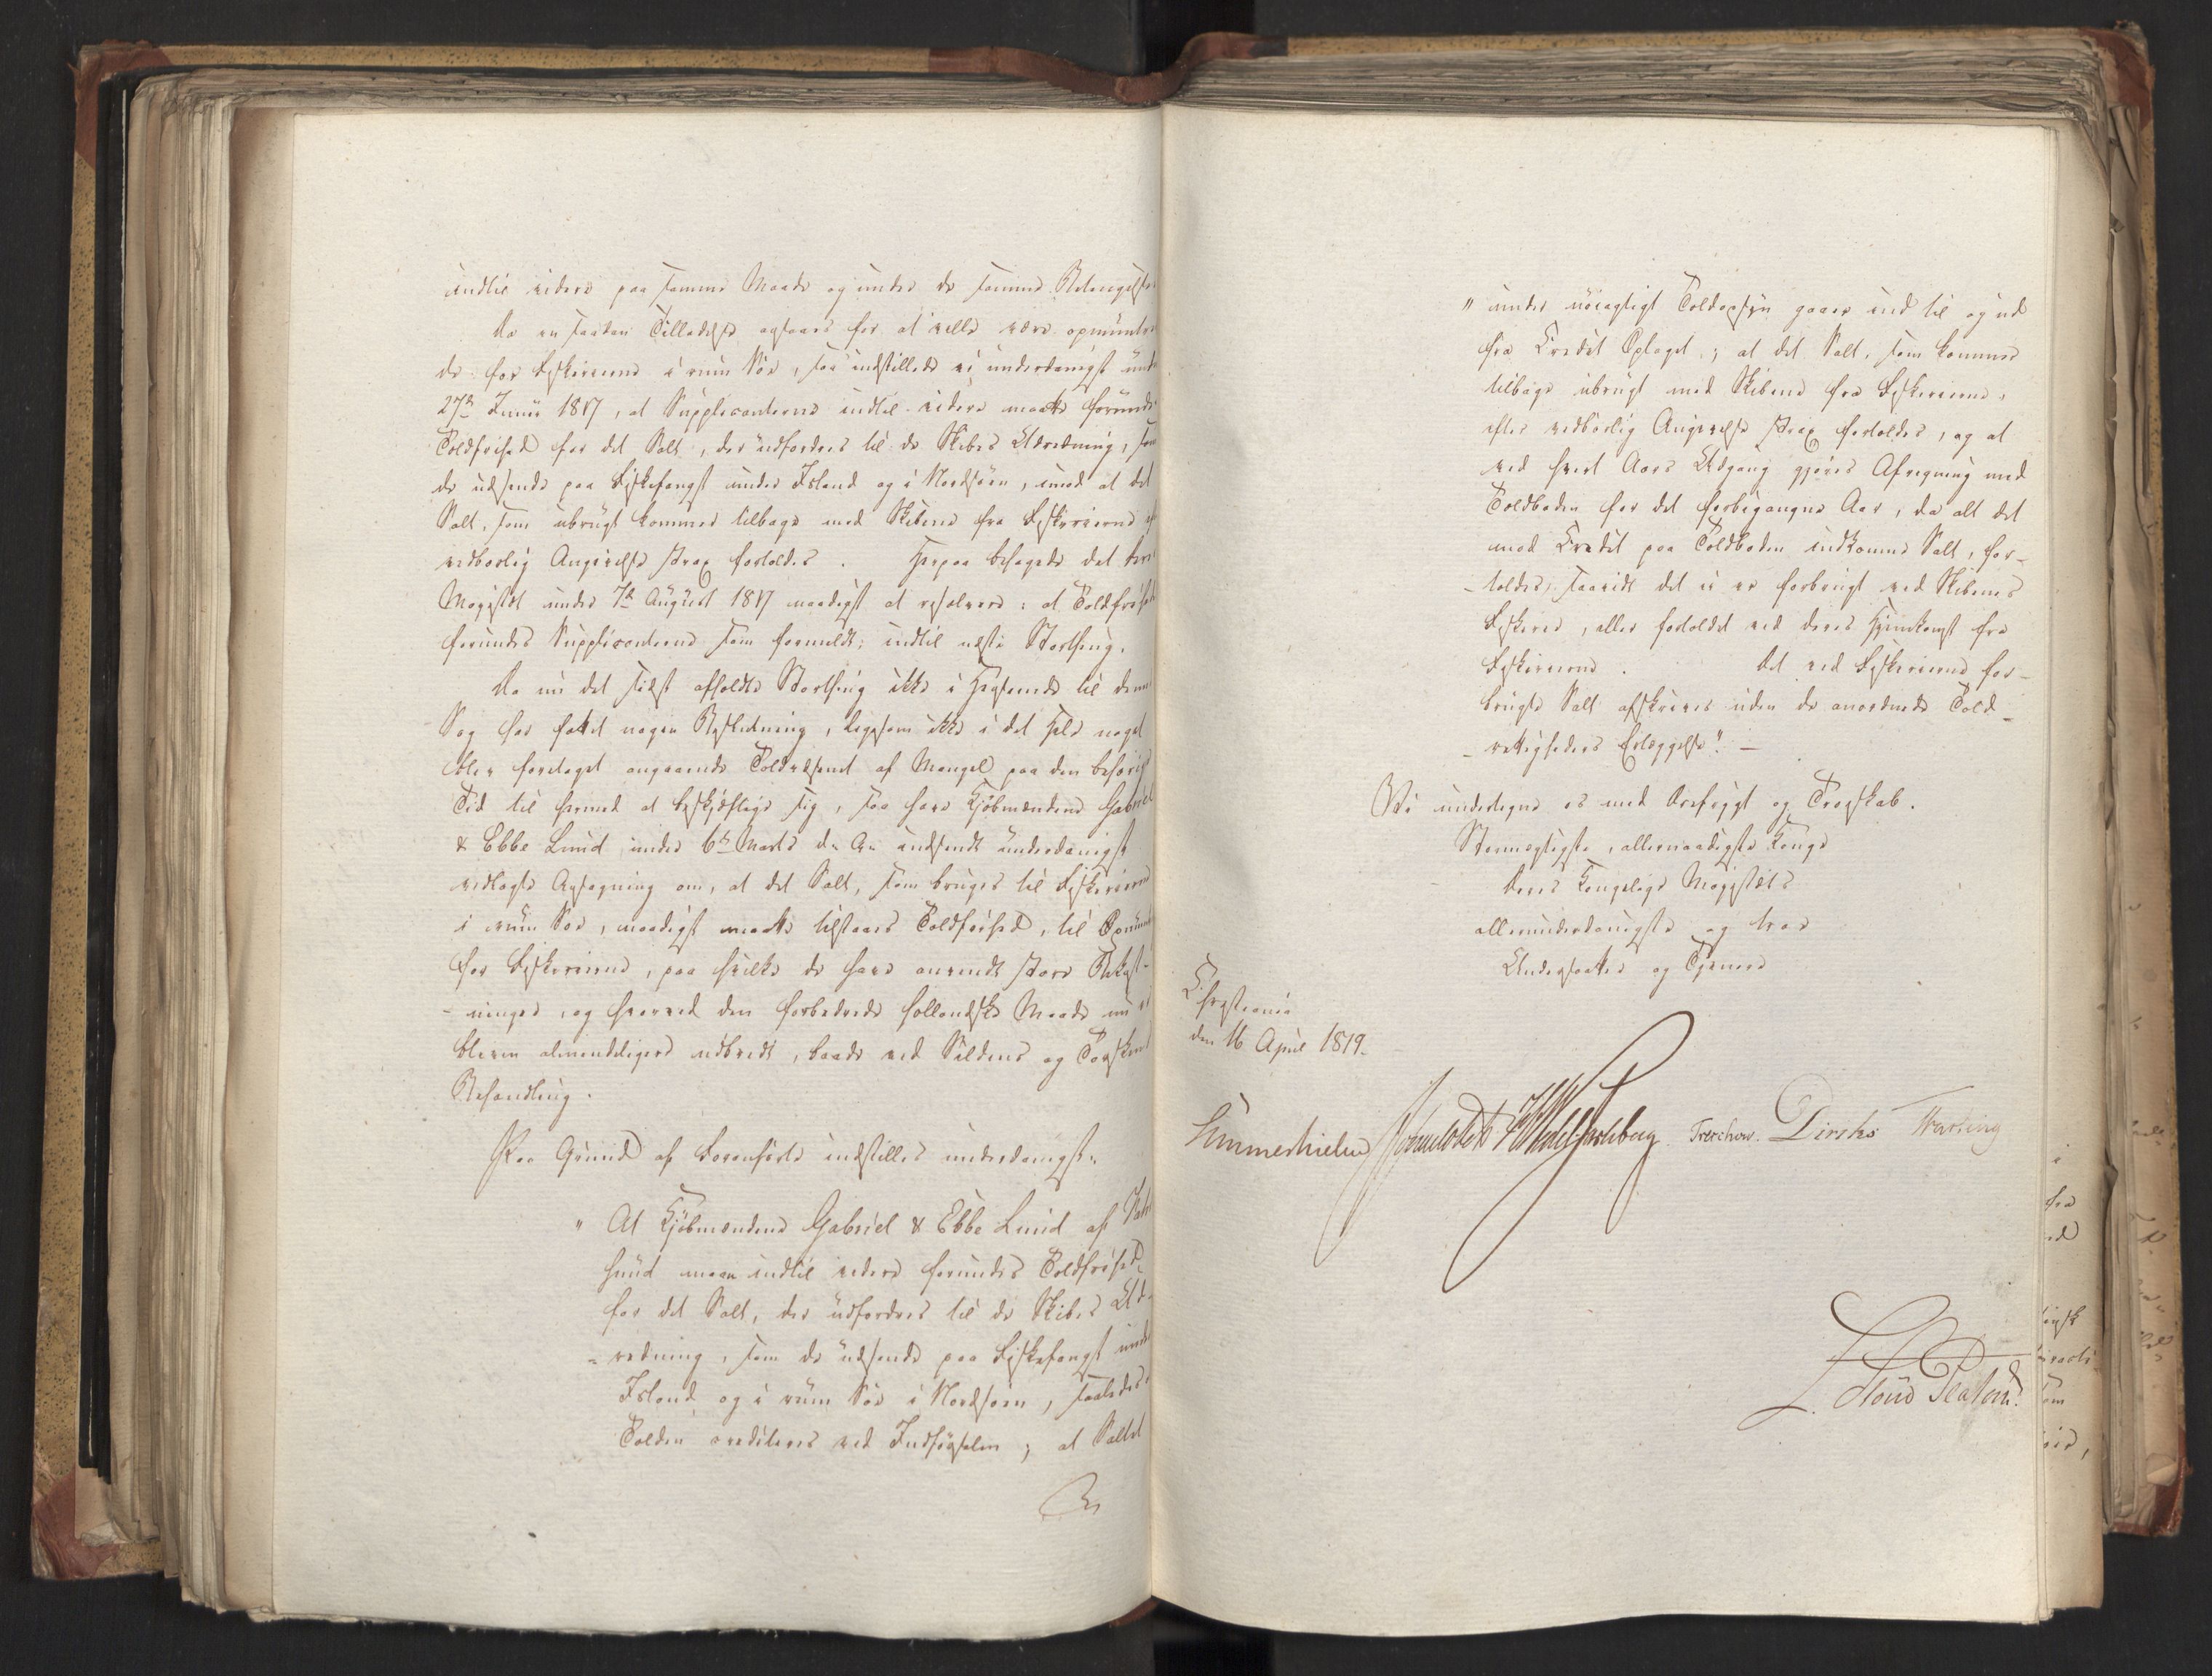 indtil videre paa samme Maade og under de samme Betingelser
Da en saadan Tilladelse ansaaes for at ville være opmuntren
de for Fiskerierne i rum Søe, saa indstillede vi underdanigst under
27de Junii 1817, at Supplicanterne indtil videre maatte forundes
Toldfrihed for det Salt, der udfordres til de Skibes Udredning, som
de udsende paa Fiskefangst under Island og i Nordsøen, imod at det
Salt, som ubrugt kommer tilbage med Skibene fra Fiskerierne efter
vedbørlig Angivelse strax fortoldes. Herpaa behagede det Deres
Majestæt under 7de August 1817 naadigst at resolvere: at Toldfrihed
forundes Supplicanterne som formeldt; indtil næste Storthing.
Da nu det sidst afholdte Storthing ikke i Henseende til denne
Sag har fattet nogen Beslutning, ligesom ikke i det Hele noget
blev foretaget angaaende Toldvæsenet af Mangel paa den behørige
Tid til hermed at beskjæftige sig, saa have Kjøbmændene Gabriel
& Ebbe Lund under 6te Marts d. A. indsendt underdanigst
vedlagte Ansøgning om, at det Salt, som bruges til Fiskerierne
i rum Søe, naadigst maatte tilstaaes Toldfrihed, til Opmuntr
for Fiskerierne, paa hvilke de have anvendt store Bekost-
-ninger, og hvorved den forbedrede hollandske Maade nu er
bleven almindeligere udbredt, baade ved Sildens og Torskens
Behandling.
Paa Grund af Foranførte indstilles underdanigst:
" At Kjøbmændene Gabriel & Ebbe Lund af Far-
sund maae indtil videre forundes Toldfrihed
for det Salt, der udfordres til de Skibes Ud-
-redning, som de udsende paa Fiskefangst under
Island og i rum Søe i Nordsøen, saaledes:
Tolden crediteres ved Indførselen; at Saltet
" under nøiagtigt Toldopsyn gaaer ind til og ud
fra Credit Oplaget; at det Salt, som kommer
tilbage ubrugt med Skibene fra Fiskerierne,
efter vedbørlig Angivelse strax fortoldes, og at
ved hvert Aars Udgang gjøres Afregning med
Toldboden for det forbigangne Aar, da alt det
mod Credit paa Toldboden indkomne Salt, for-
-toldes, saavidt det ei er forbrugt ved Skibenes
Fiskerie, eller fortoldet ved deres Hjemkomst fra
Fiskerierne. Det ved Fiskerierne for-
brugte Salt afskrives uden de anordnede Told-
-rettigheders Erlæggelse". —
Vi undertegne os med Ærefrygt og Troeskab.
Stormægtigste, allernaadigste Konge
Deres Kongelige Majestæts
allerunderdanigste og troe
Undersaatter og Tjenere
Christiania
den 16 April 1819.
Sommerhielm HWedelJarlsberg Treschow. Diriks Krebs Fasting
L. Stoud Platou.